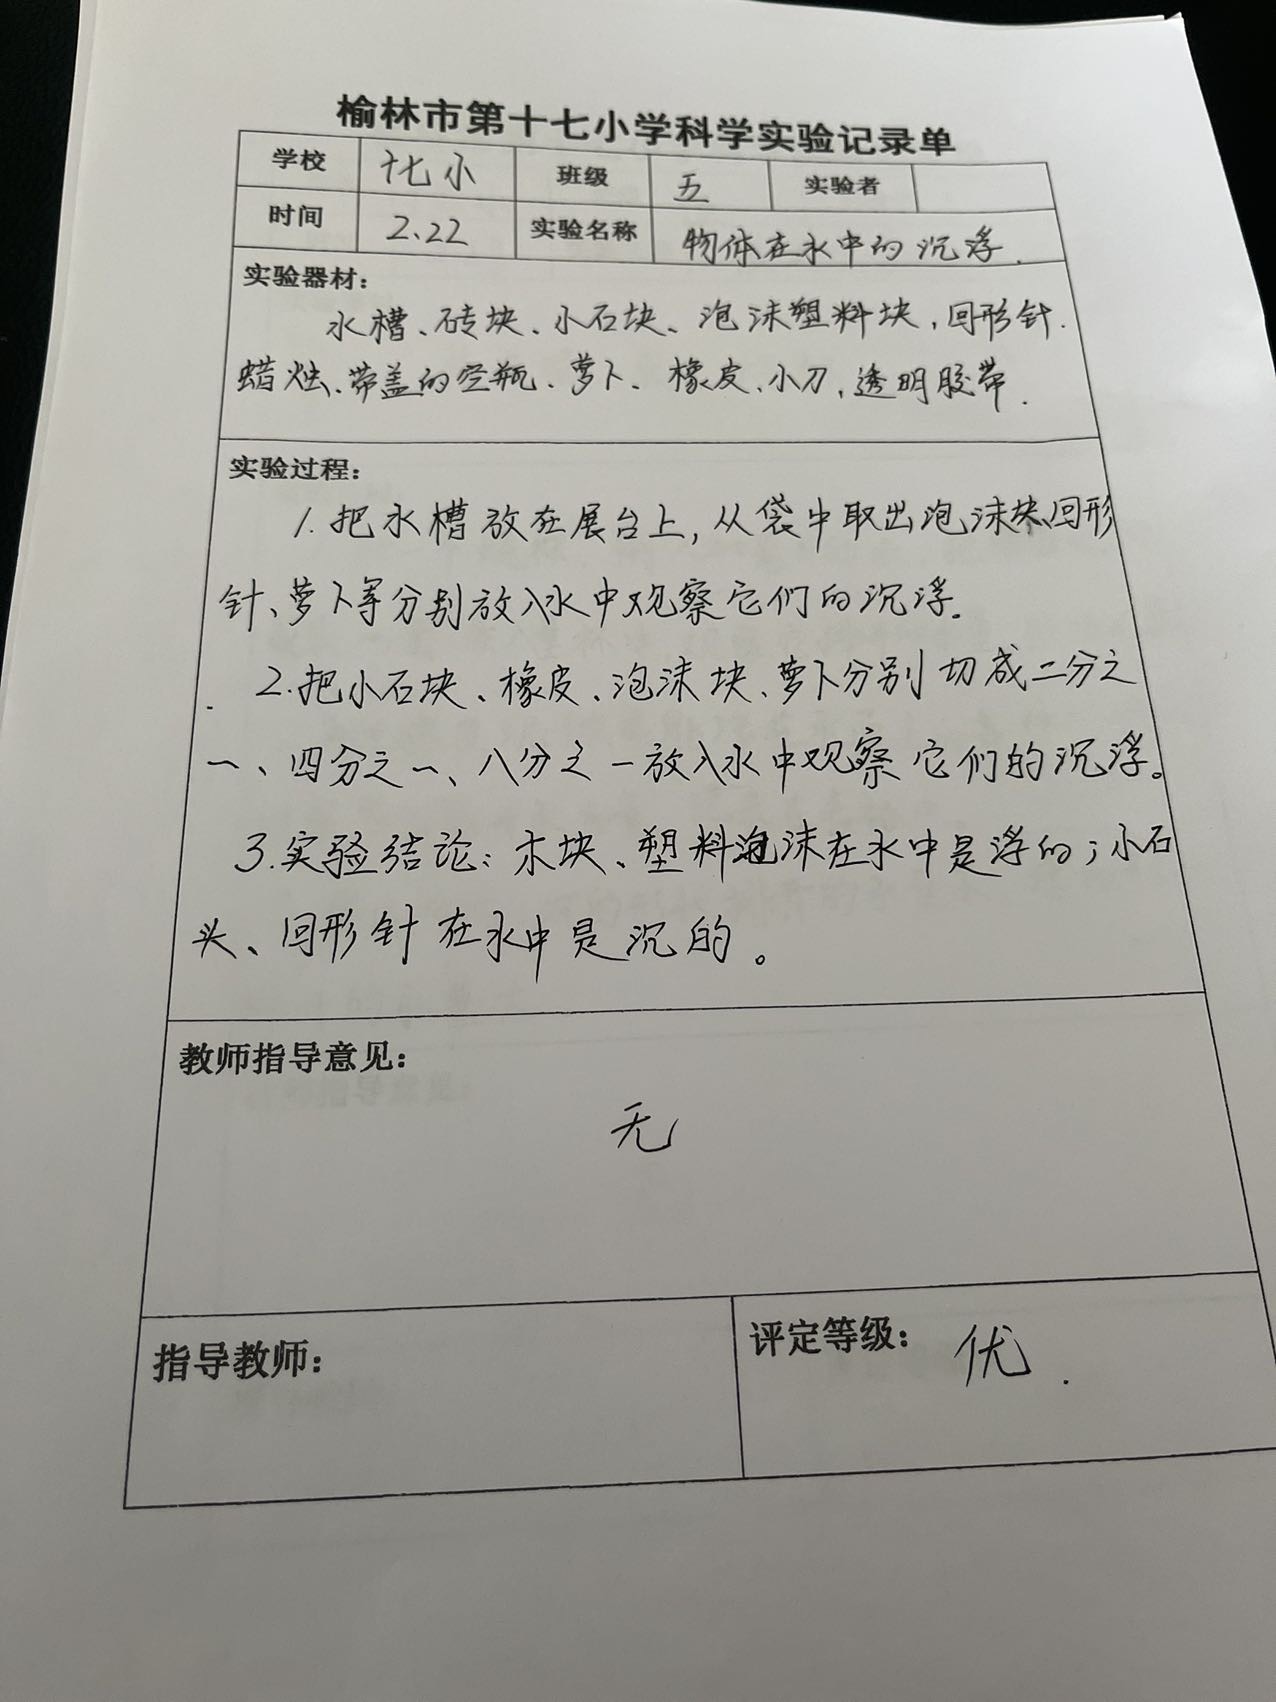 榆林市第十七小学科学实验记录单
学校 十七小 班级 五 实验者
时间 2.22 实验名称 物体在水中的沉浮.
实验器材：
水槽、砖块、小石块、泡沫塑料块，回形针.
蜡烛、带盖的空瓶、萝卜、橡皮、小刀，透明胶带.
实验过程：
1.把水槽放在展台上，从袋中取出泡沫块、回形
针、萝卜等分别放入水中观察它们的沉浮.
2.把小石块、橡皮、泡沫块、萝卜分别切成二分之
一、四分之一、八分之一放入水中观察它们的沉浮。
3.实验结论：木块、塑料泡沫在水中是浮的；小石
头、回形针在水中是沉的。
教师指导意见：
无
指导教师：
评定等级： 优.